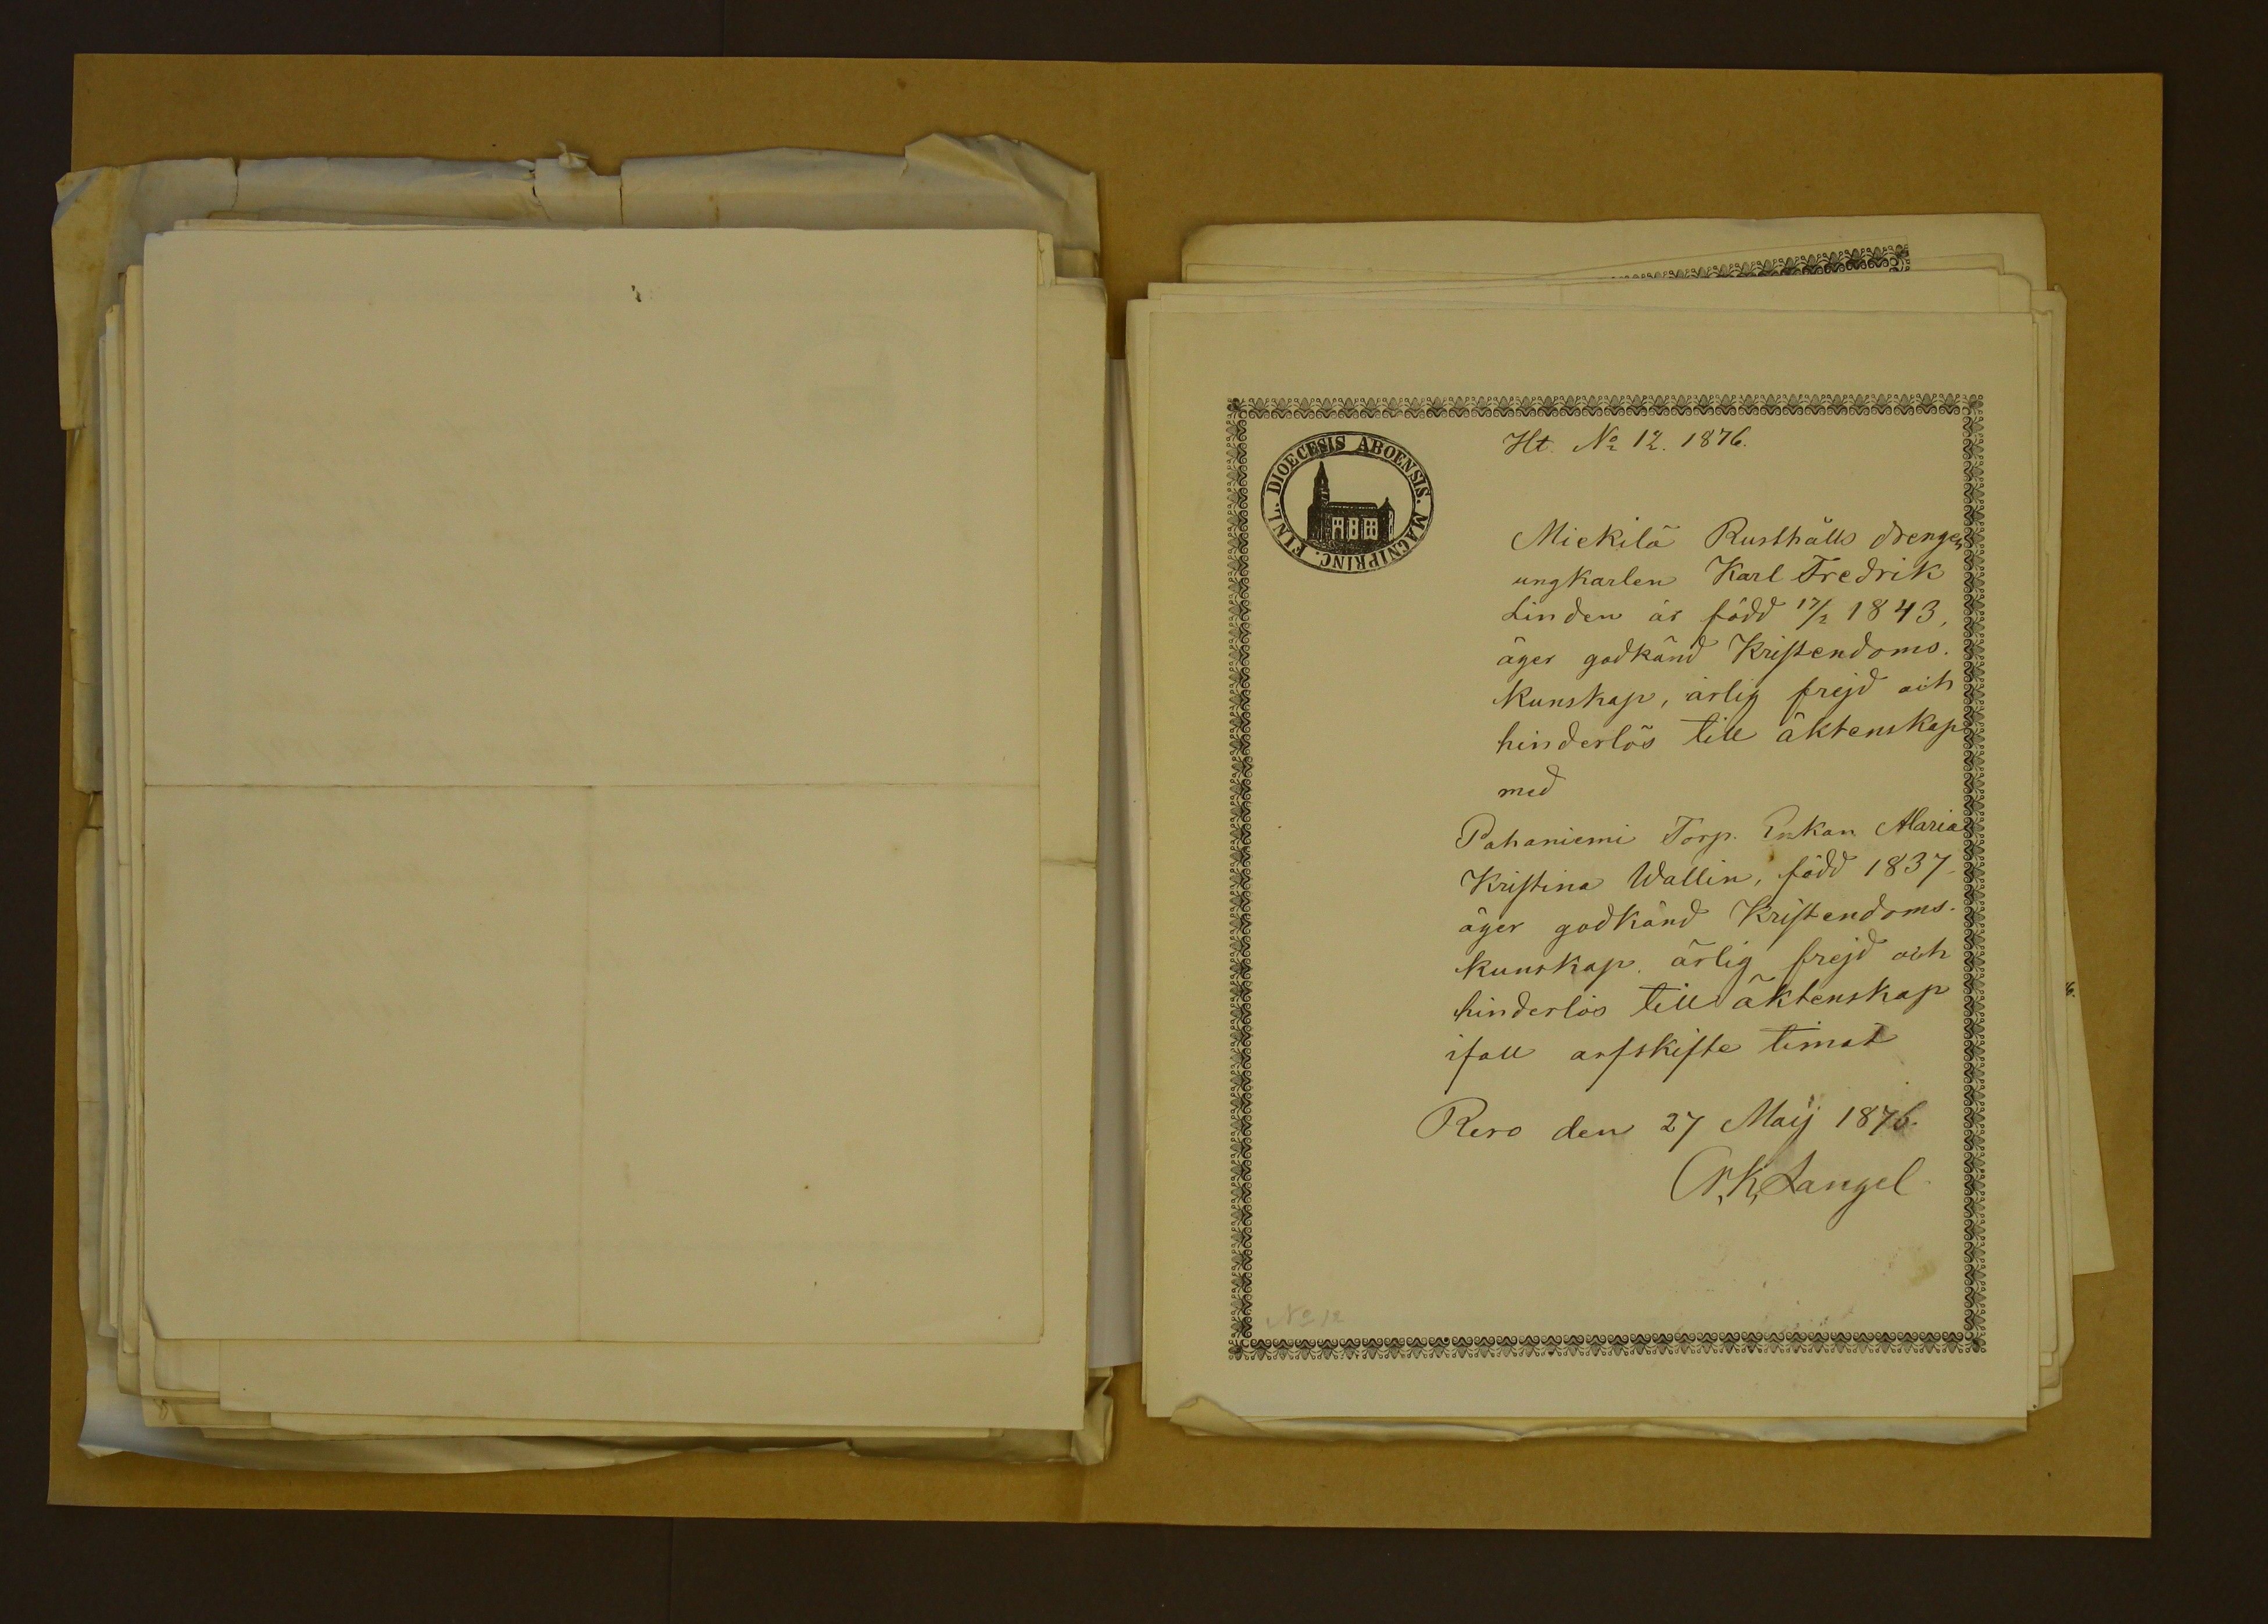 DIOECESIS ABOENSIS. MAGNIPRINC. FINL.
Ht. No 12. 1876.
Mickilä Rusthålls drengen
ungkarlen Karl Fredrik
Linden är född 17/2 1843,
äger godkänd Kristendoms.
Kunskap, ärlig frejd och
hinderlös till äktenskap
med
Pahaniemi Torp. Enkan Maria
Kristina Wallin, född 1837
äger godkänd Kristendoms.
kunskap. ärlig frejd och
hinderlös till äktenskap
ifall arfskifte timat
Reso den 27 Maij 1876.
Langel
No 12